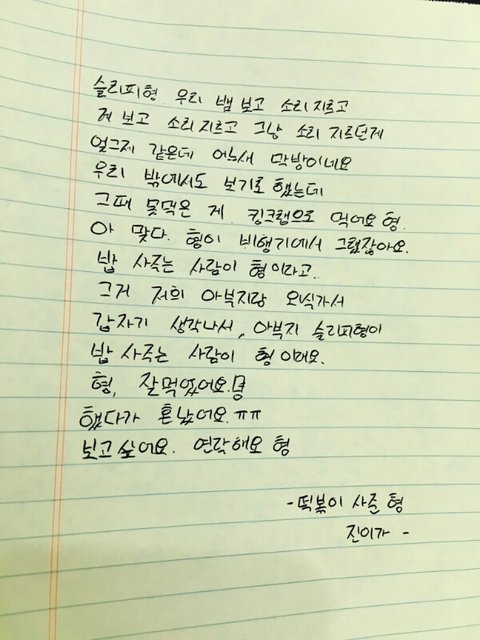 슬리피형 우리 뱀 보고 소리 지르고
게 보고 소리 지르고 그냥 소리 지르던게
엊그제 같은데 어느새 막방이네요
우리 밖에서도 보기로 했는데
그때 못먹은 게 킹크랩으로 먹어요 형.
아 맞다. 형이 비행기에서 그랬잖아요.
밥 사주는 사람이 형이라고.
그거 저희 아부지랑 외식가서
갑자기 생각나서, 아부지 슬리피형이
밥 사주는 사람이 형 이래요.
형, 잘먹었어요.형
했다가 혼났어요.ㅠㅠ
보고싶어요. 연락해요 형
-떡볶이 사준 형
진이가 -